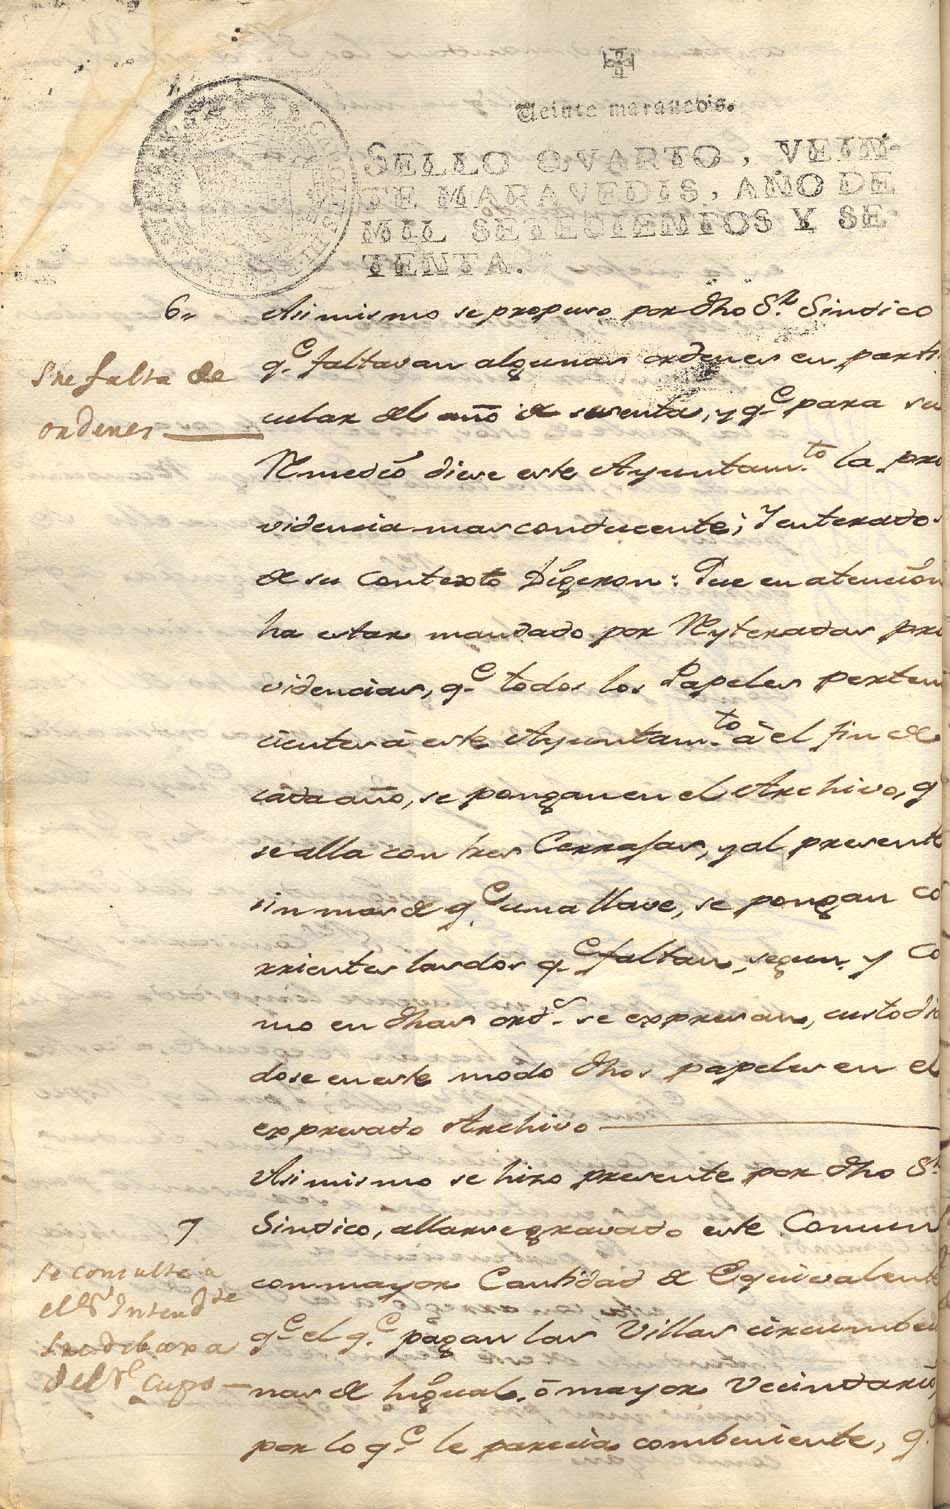 Veinte maravedis.
SELLO QVARTO, VEIN-
TE MARAVEDIS, AÑO DE
MIL SETECIENTOS Y SE-
TENTA.
6,, Asimismo se propuso por dho Sr. Sindico
Sre falta de
ordenes
qe. faltavan algunas ordenes en parti
cular del año de sesenta, y qe. para su
Remedio diese este Ayuntamto. la pro
videncia mas conducente; Y enterados
de su Contexto Dijeron: Que en atencion
ha estar mandado por Reyteradas pro
videncias, qe. todos los Papeles perten
cientes â este Ayuntamto. â el fin de
cada año, se pongan en el Archivo, q
se alla con tres Cerrajas, y al present
sin mas de qe. una llave, se pongan co
rrientes las dos qe. faltan, segun y co
mo en dhas ordes. se expresan, custodia
dose en este modo dhos papeles en el
expresado Archivo
7 Asimismo se hizo presente por dho Sr.
Sindico, allarse gravado este Comun
con mayor Cantidad de Equivalente
qe. el qe. pagan las Villas circumbeci
nas de higual, ô mayor Vecindario,
por lo qe. le parecia combeniente, q.
Se consulte a
el Sr. Intendte.
Sre. de baxa
del Rl. Cupo